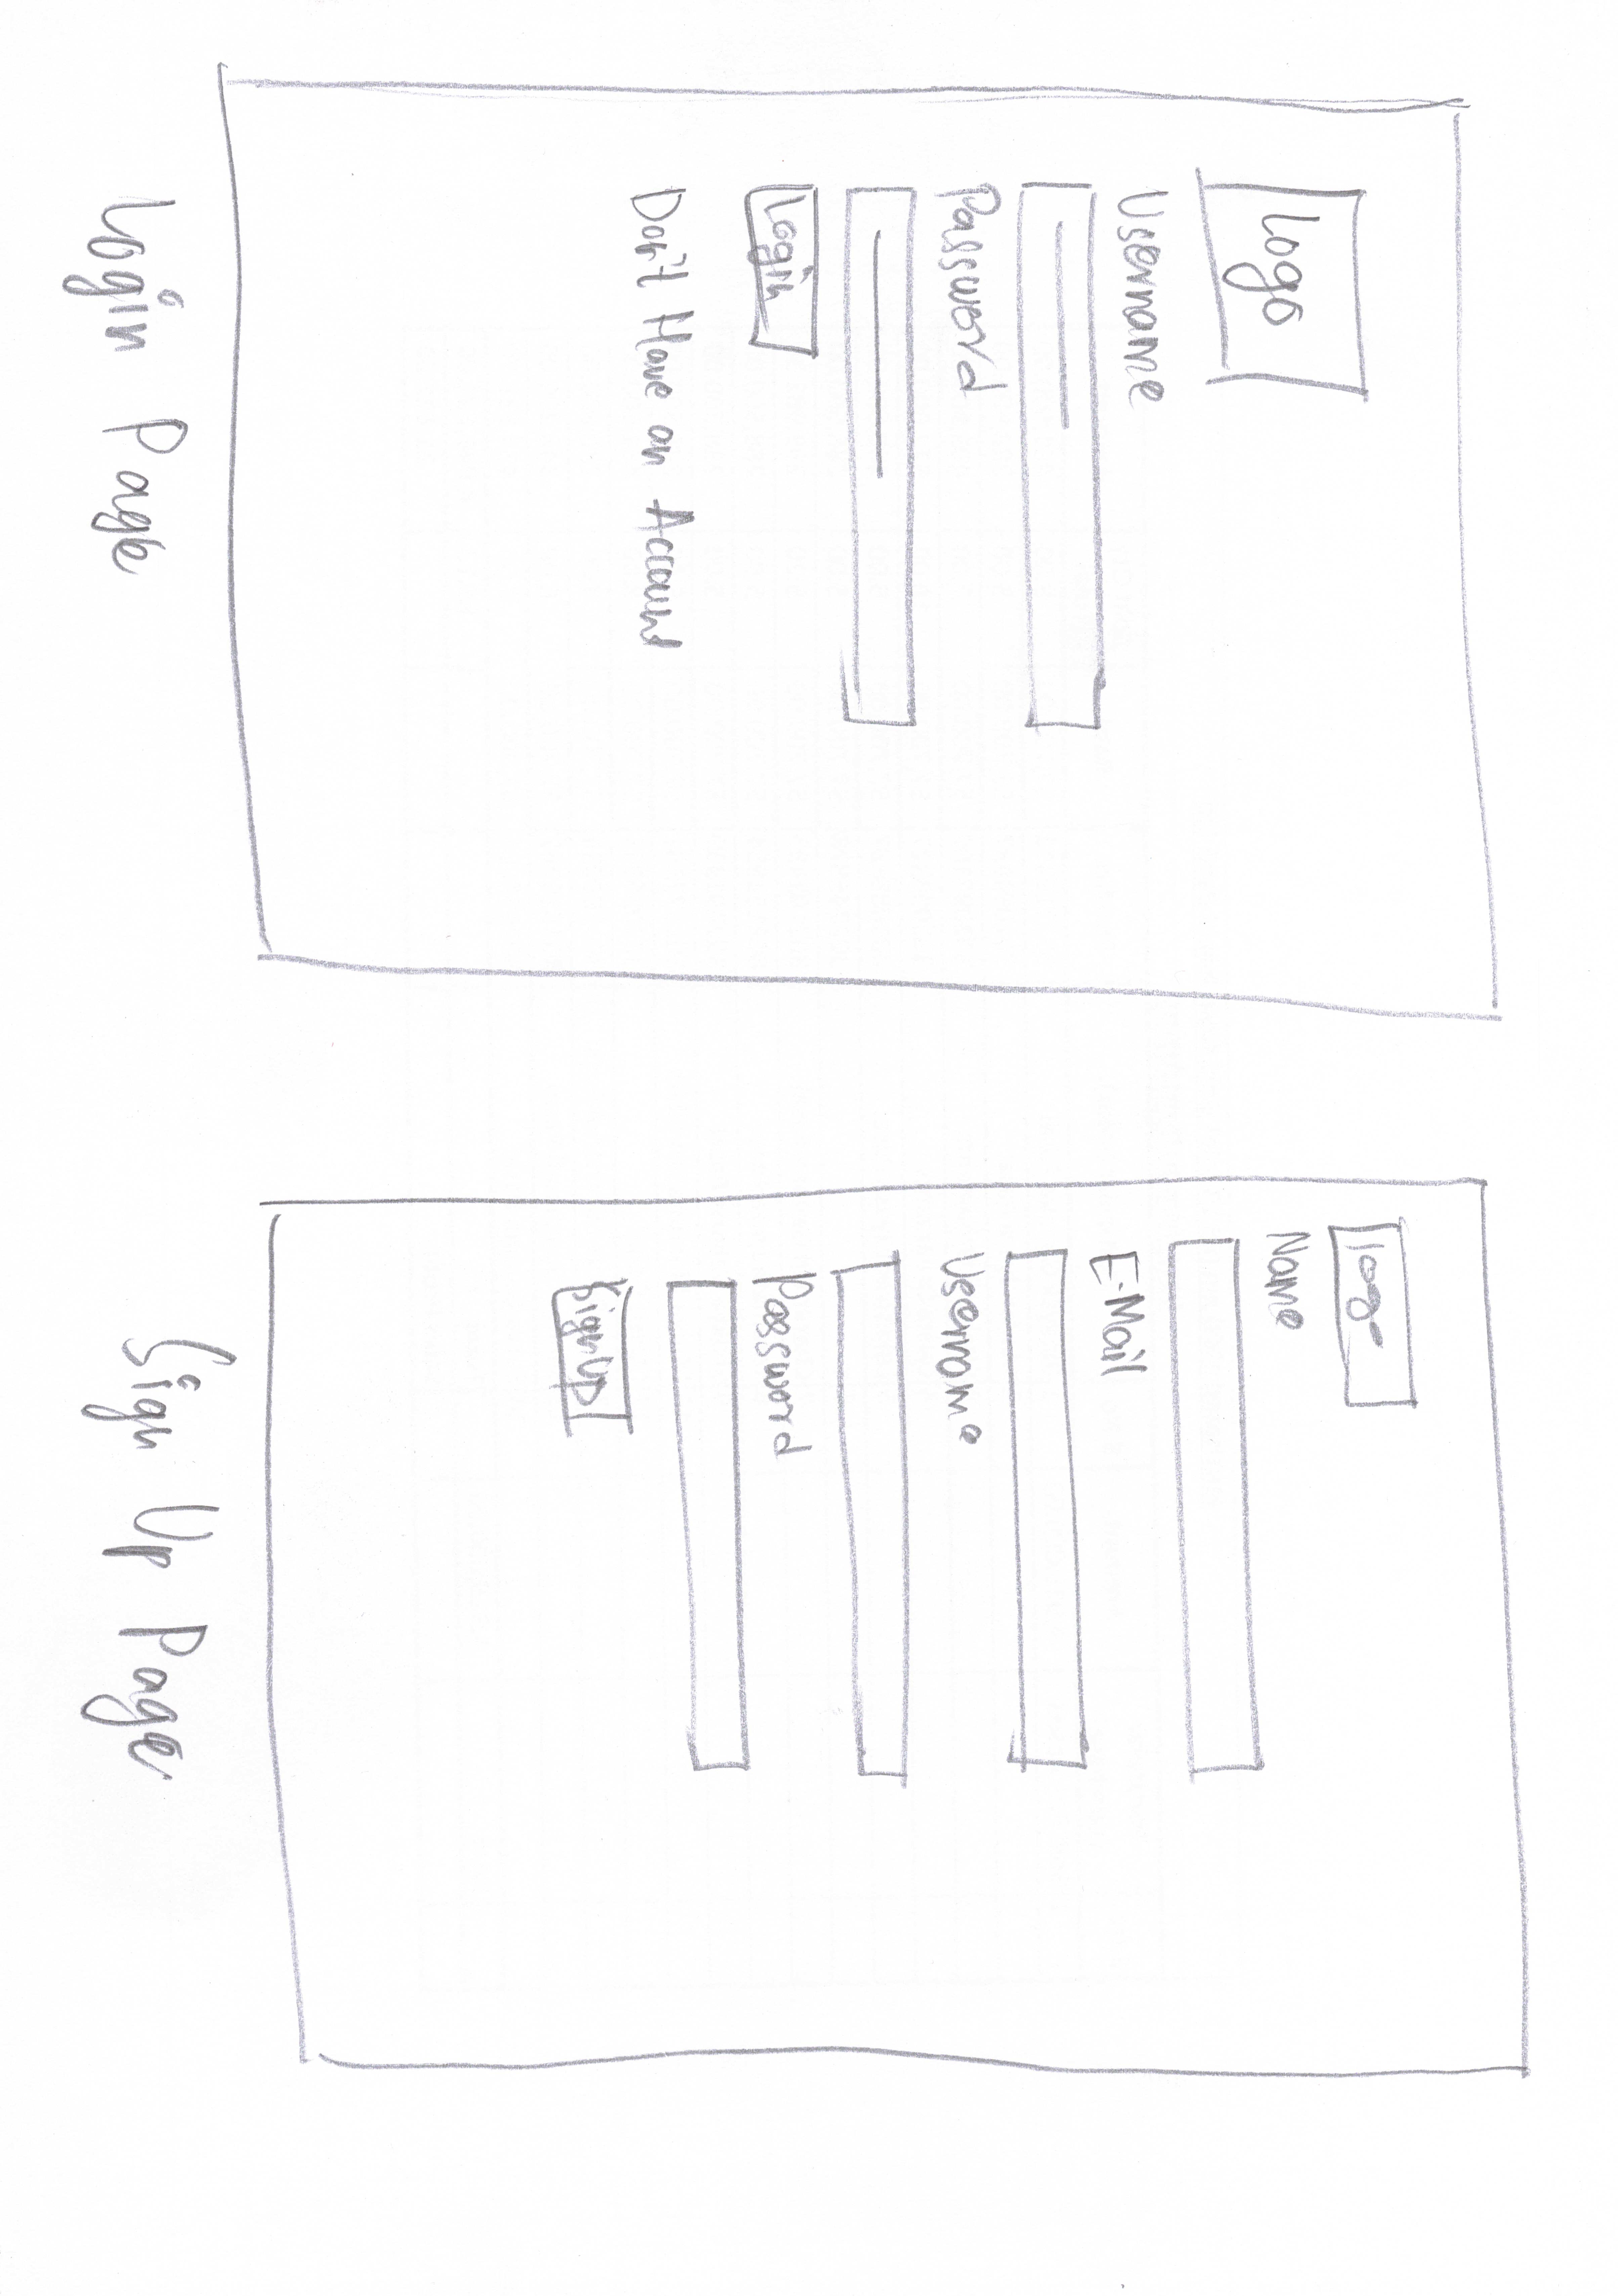 Logo
Username
Password
Login
Don't Have an Account
Login Page
logo
Name
E-Mail
Username
Password
Sign Up
Sign Up Page